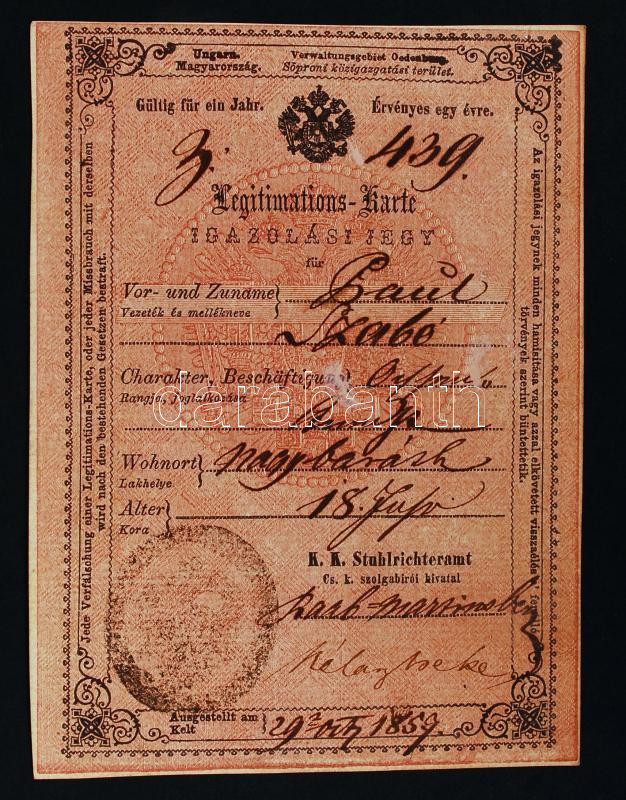 Ungarn. Verwaltungsgebiet Oedenburg.
Magyarország. Soproni közigazgatási terület.
Gültig für ein Jahr. Érvényes egy évre.
Z. 439.
Legitimations-Karte
IGAZOLÁSI JEGY
für
Vor- und Zuname Paul
Vezeték és mellékneve
Szabó
Charakter, Beschäftigung
Rangja, foglalkozása
darabanth
Wohnort
Lakhelye
Alter 18. Jahr
Kora
K. K. Stuhlrichteramt
Cs. k. szolgabirói hivatal
Raab-Martinsberg
Ausgestellt am 29 1859.
Kelt
Jede Verfälschung einer Legitimations-Karte, oder jeder Missbrauch mit derselben
wird nach den bestehenden Gesetzen bestraft.
Az igazolási jegynek minden hamisitása vagy azzal elkövetett visszaélés a fennálló
törvények szerint büntettetik.